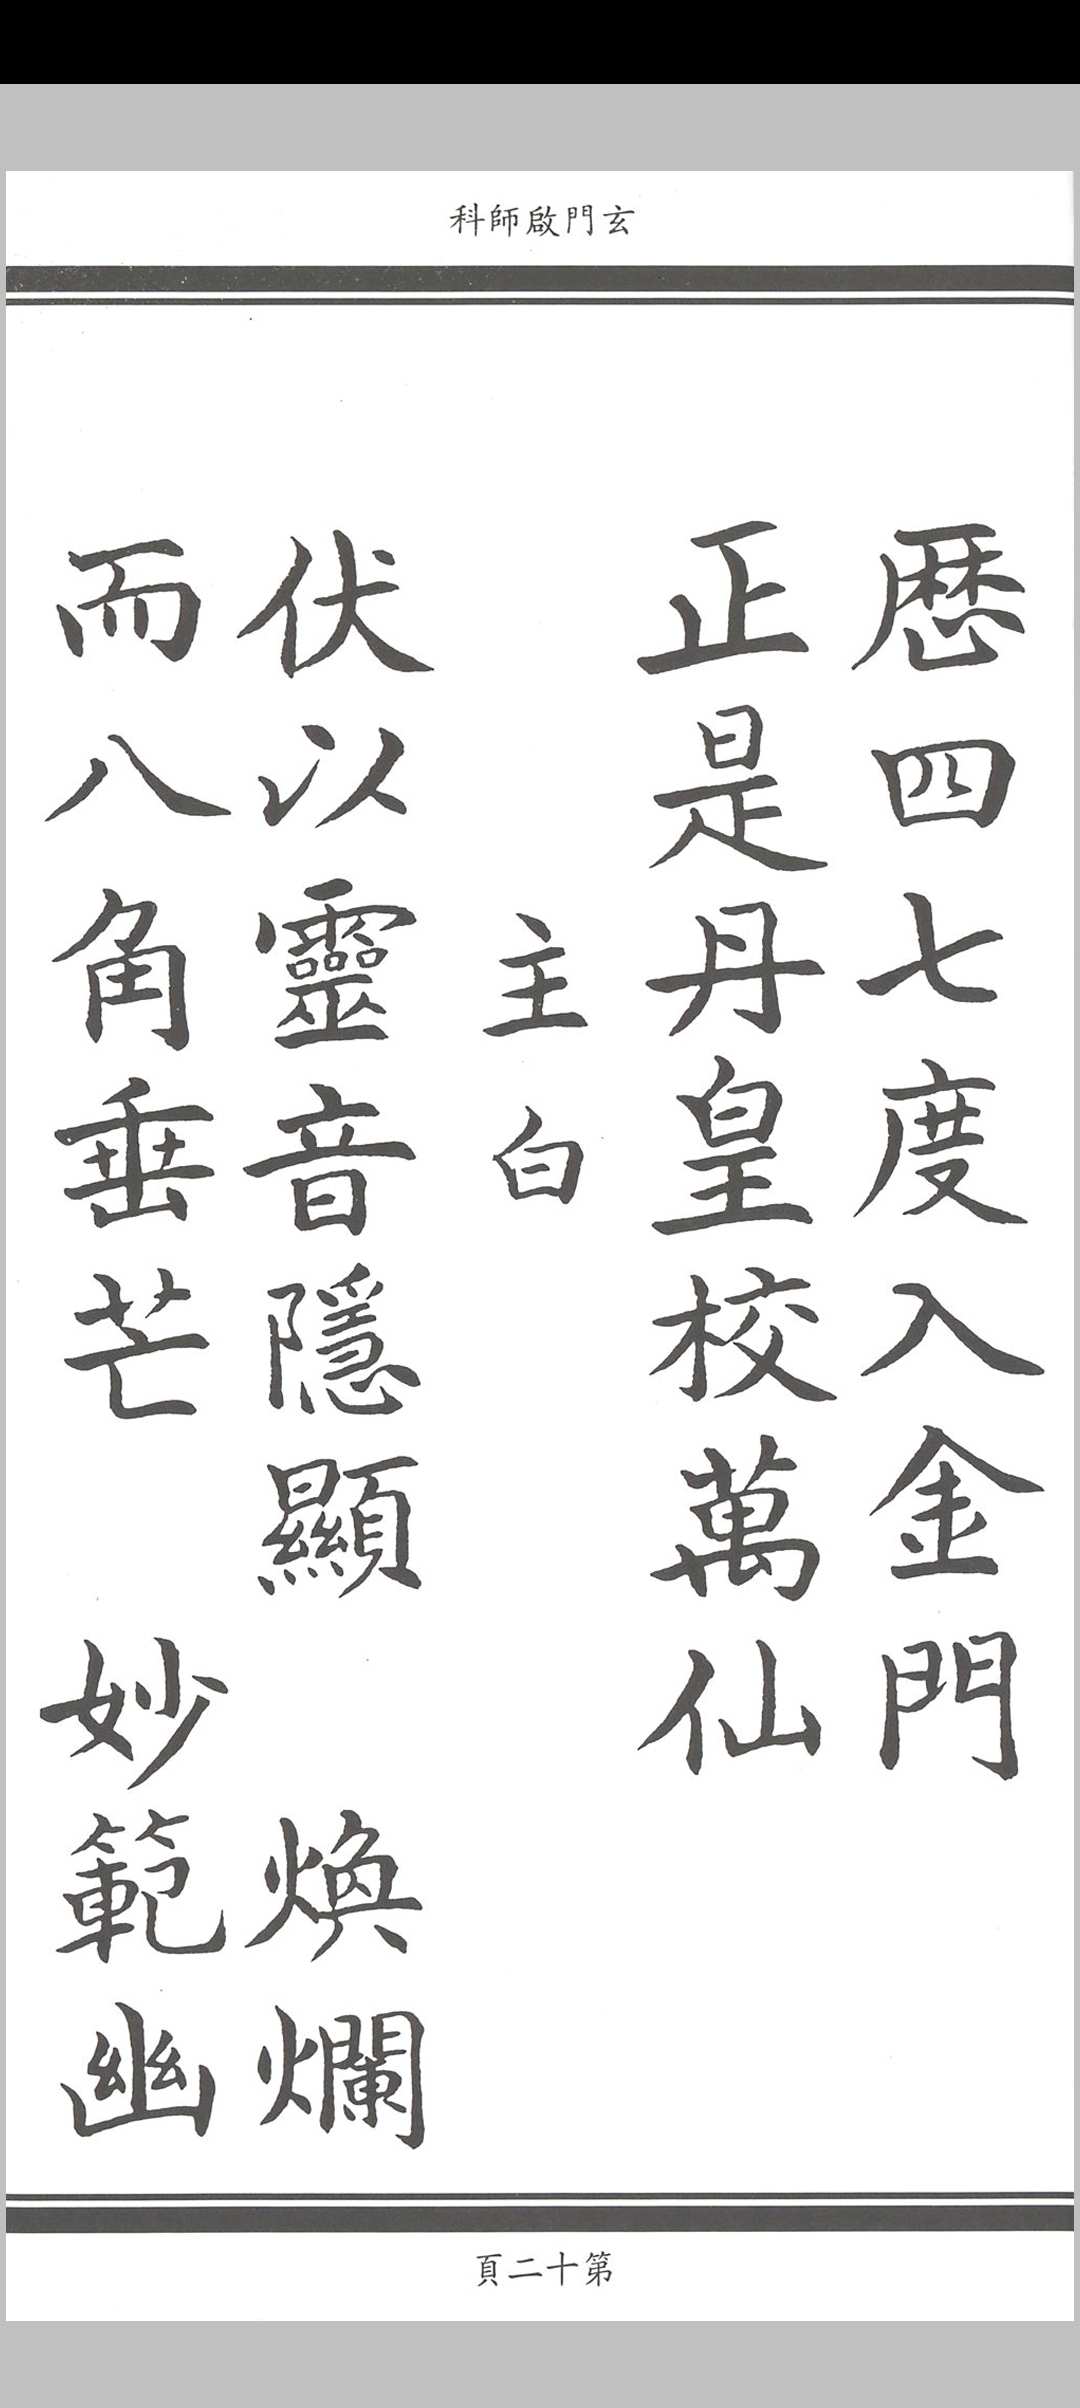 玄門啟師科
歴四七度入金門
正是丹皇校萬仙
主白
伏以靈音隱顯 煥爛
而八角垂芒 妙範幽
第十二頁